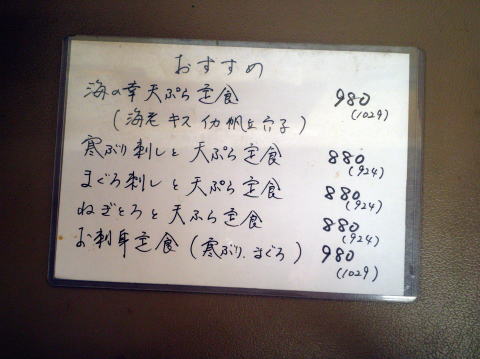 おすすめ
海の幸天ぷら定食 980
(海老 キス イカ 帆立 穴子) (1029)
寒ぶり刺しと天ぷら定食 880
(924)
まぐろ刺しと天ぷら定食 880
(924)
ねぎとろと天ぷら定食 880
(924)
お刺身定食(寒ぶり、まぐろ) 980
(1029)